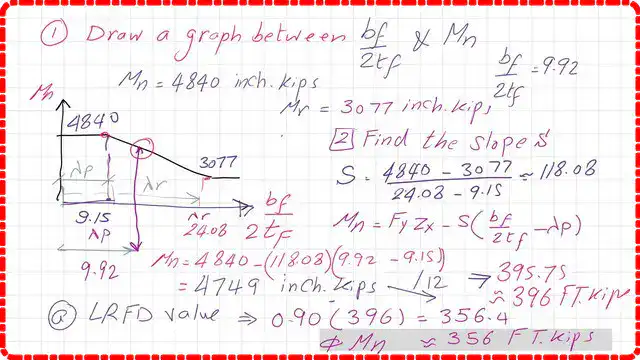 ① Draw a graph between bf/2tf & Mn
Mn = 4840 inch.kips
bf/2tf = 9.92
Mr = 3077 inch.kips
Mn
4840
3077
λp
λr
9.15
λp
λr
24.08
bf/2tf
9.92
2 Find the slope S
S = (4840 - 3077)/(24.08 - 9.15) ≈ 118.08
Mn = Fy Zx - S(bf/2tf - λp)
Mn = 4840 - (118.08)(9.92 - 9.15)
= 4749 inch.kips /12 ⇒ 395.75
≈ 396 FT.kips
LRFD value ⇒ 0.90(396) = 356.4
ϕMn ≈ 356 FT.kips